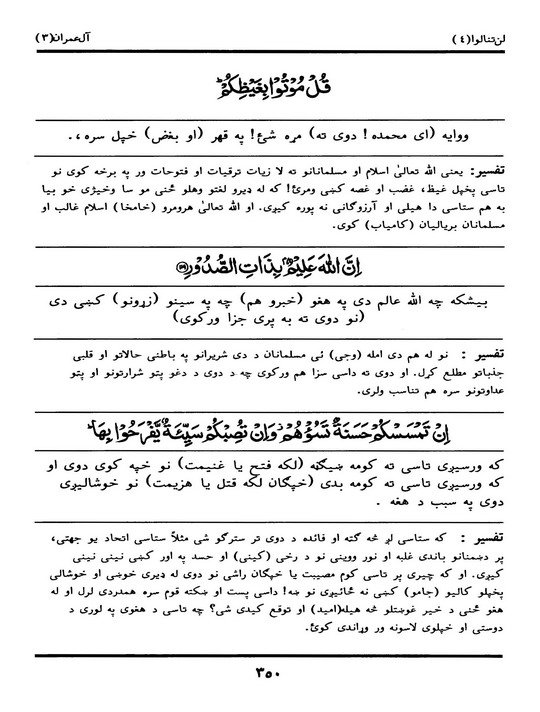 لن تنالوا (٤)
آل عمران (٣)
قُلْ مُوْتُوْا بِغَيْظِكُمْؕ
ووايه (ای محمده! دوی ته) مړه شئ! په قهر (او بغض) خپل سره،.
تفسیر: یعنی الله تعالیٰ اسلام او مسلمانانو ته لا زیات ترقیات او فتوحات ور په برخه کوی نو
تاسی پخپل غیظ، غضب او غصه کښی ومرئ! که له ډیرو لغتو وهلو ځنی مو سا وخیژی خو بیا
به هم ستاسی دا هیلی او آرزوگانی نه پوره کیږی. او الله تعالیٰ هرومرو (خامخا) اسلام غالب او
مسلمانان بریالیان (کامیاب) کوی.
اِنَّ اللّٰهَ عَلِيْمٌۢ بِذَاتِ الصُّدُوْرِ ﴿۱۱۹﴾
بیشکه چه الله عالم دی په هغو (خبرو هم) چه په سینو (زړونو) کښی دی
(نو دوی ته به پری جزا ورکوی)
تفسیر : نو له هم دی امله (وجی) ئی مسلمانان د دی شریرانو په باطنی حالاتو او قلبی
جذباتو مطلع کړل. او دوی ته داسی سزا هم ورکوی چه د دوی د دغو پتو شرارتونو او پتو
عداوتونو سره هم تناسب ولری.
اِنْ تَمْسَسْكُمْ حَسَنَةٌ تَسُؤْهُمْ وَاِنْ تُصِبْكُمْ سَيِّئَةٌ يَّفْرَحُوْا بِهَاؕ
که ورسیږی تاسی ته کومه ښیگڼه (لکه فتح یا غنیمت) نو خپه کوی دوی او
که ورسیږی تاسی ته کومه بدی (خپگان لکه قتل یا هزیمت) نو خوشالیږی
دوی په سبب د هغه .
تفسیر : که ستاسی لږ څه گته او فائده د دوی تر سترگو شی مثلاً ستاسی اتحاد یو جهتی،
پر دښمنانو باندی غلبه او نور ووینی نو د رخی (کینی) او حسد په اور کښی نینی نینی
کیږی. او که چیری پر تاسی کوم مصیبت یا خپگان راشی نو دوی له ډیری خوښی او خوشالی
پخپلو کالیو (جامو) کښی نه ځائیږی نو ښه! داسی پست او ښکته قوم سره همدردی لرل او له
هغو ځنی د خیر غوښتلو څه هیله(امید) او توقع کیدی شی؟ چه تاسی د هغوی په لوری د
دوستی او خپلوی لاسونه ور وړاندی کوئ.
٣٥٠